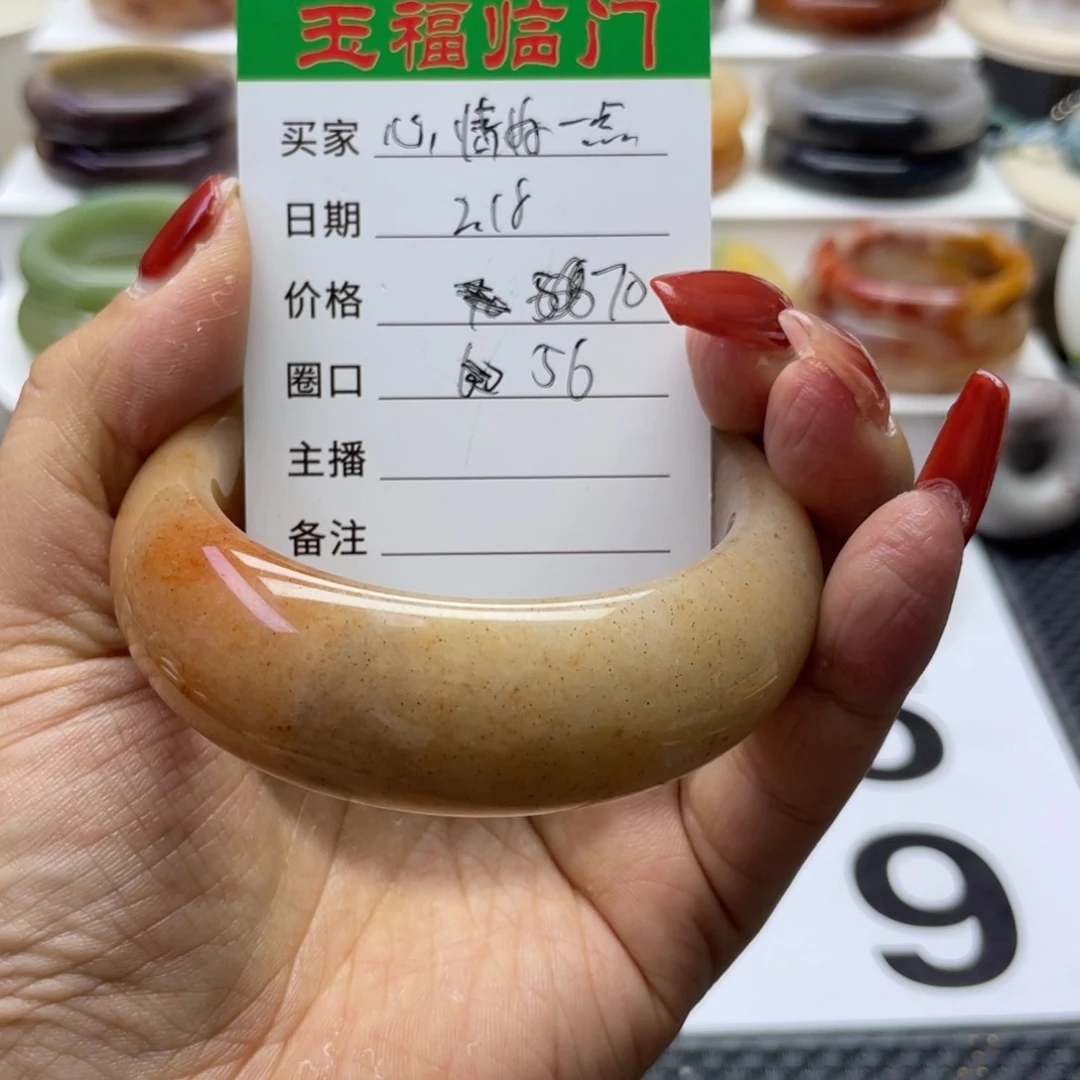 玉福临门
买家 心情好一点
日期 2.18
价格 70
圈口 56
主播
备注
9